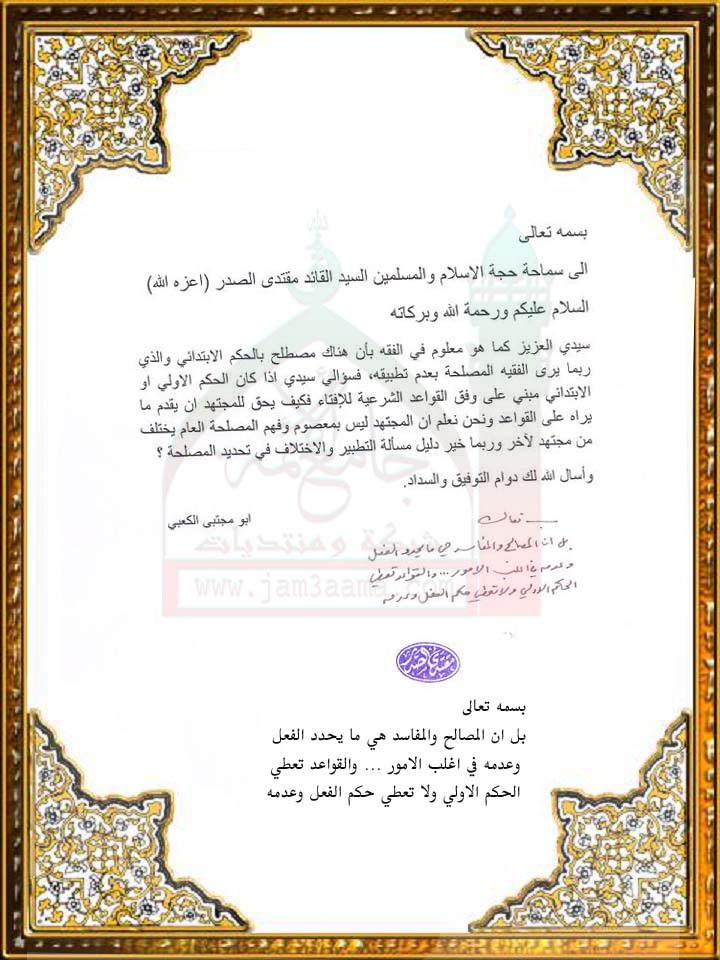 بسمه تعالى
الى سماحة حجة الاسلام والمسلمين السيد القائد مقتدى الصدر (اعزه الله)
السلام عليكم ورحمة الله وبركاته
سيدي العزيز كما هو معلوم في الفقه بأن هناك مصطلح بالحكم الابتدائي والذي
ربما يرى الفقيه المصلحة بعدم تطبيقه، فسؤالي سيدي اذا كان الحكم الاولي او
الابتدائي مبني على وفق القواعد الشرعية للإفتاء فكيف يحق للمجتهد ان يقدم ما
يراه على القواعد ونحن نعلم ان المجتهد ليس بمعصوم وفهم المصلحة العام يختلف
من مجتهد لآخر وربما خير دليل مسألة التطبير والاختلاف في تحديد المصلحة ؟
وأسال الله لك دوام التوفيق والسداد.
ابو مجتبى الكعبي
بسمه تعالى
بل ان المصالح والمفاسد هي ما يحدد الفعل
وعدمه في اغلب الامور ... والقواعد تعطي
الحكم الاولي ولا تعطي حكم الفعل وعدمه
جامع الائمة
شبكة ومنتديات
www.jam3aama.com
مقتدى الصدر
بسمه تعالى
بل ان المصالح والمفاسد هي ما يحدد الفعل
وعدمه في اغلب الامور ... والقواعد تعطي
الحكم الاولي ولا تعطي حكم الفعل وعدمه